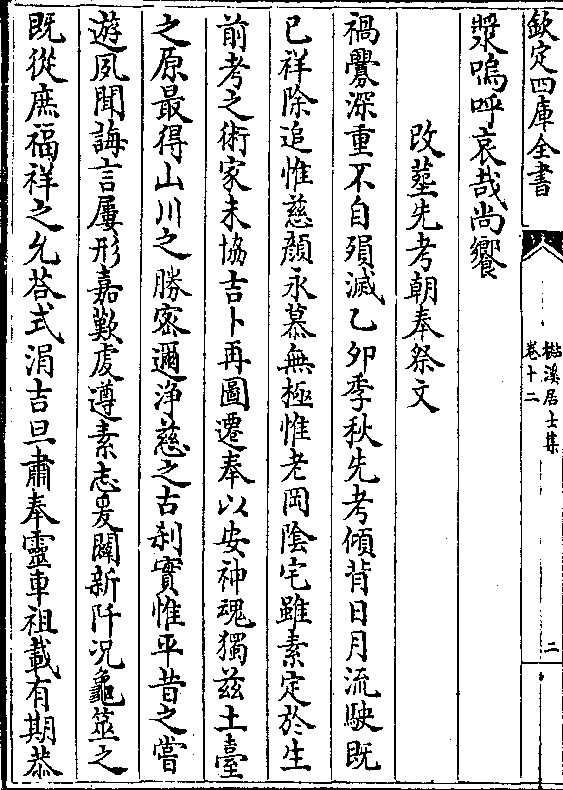 欽定四庫全書
樾溪居士集
卷十二
二
漿嗚呼哀哉尚饗
改塟先考朝奉祭文
禍釁深重不自殞滅乙夘季秋先考傾背日月流駛既
已祥除追惟慈顔永慕無極惟老岡陰宅雖素定於生
前考之術家未協吉卜再圖遷奉以安神魂獨兹土臺
之原最得山川之勝密邇浄慈之古刹實惟平昔之嘗
遊夙聞誨言屢形嘉歎䖍遵素志爰闢新阡况龜筮之
既從庶福祥之允荅式涓吉旦肅奉靈車祖載有期恭